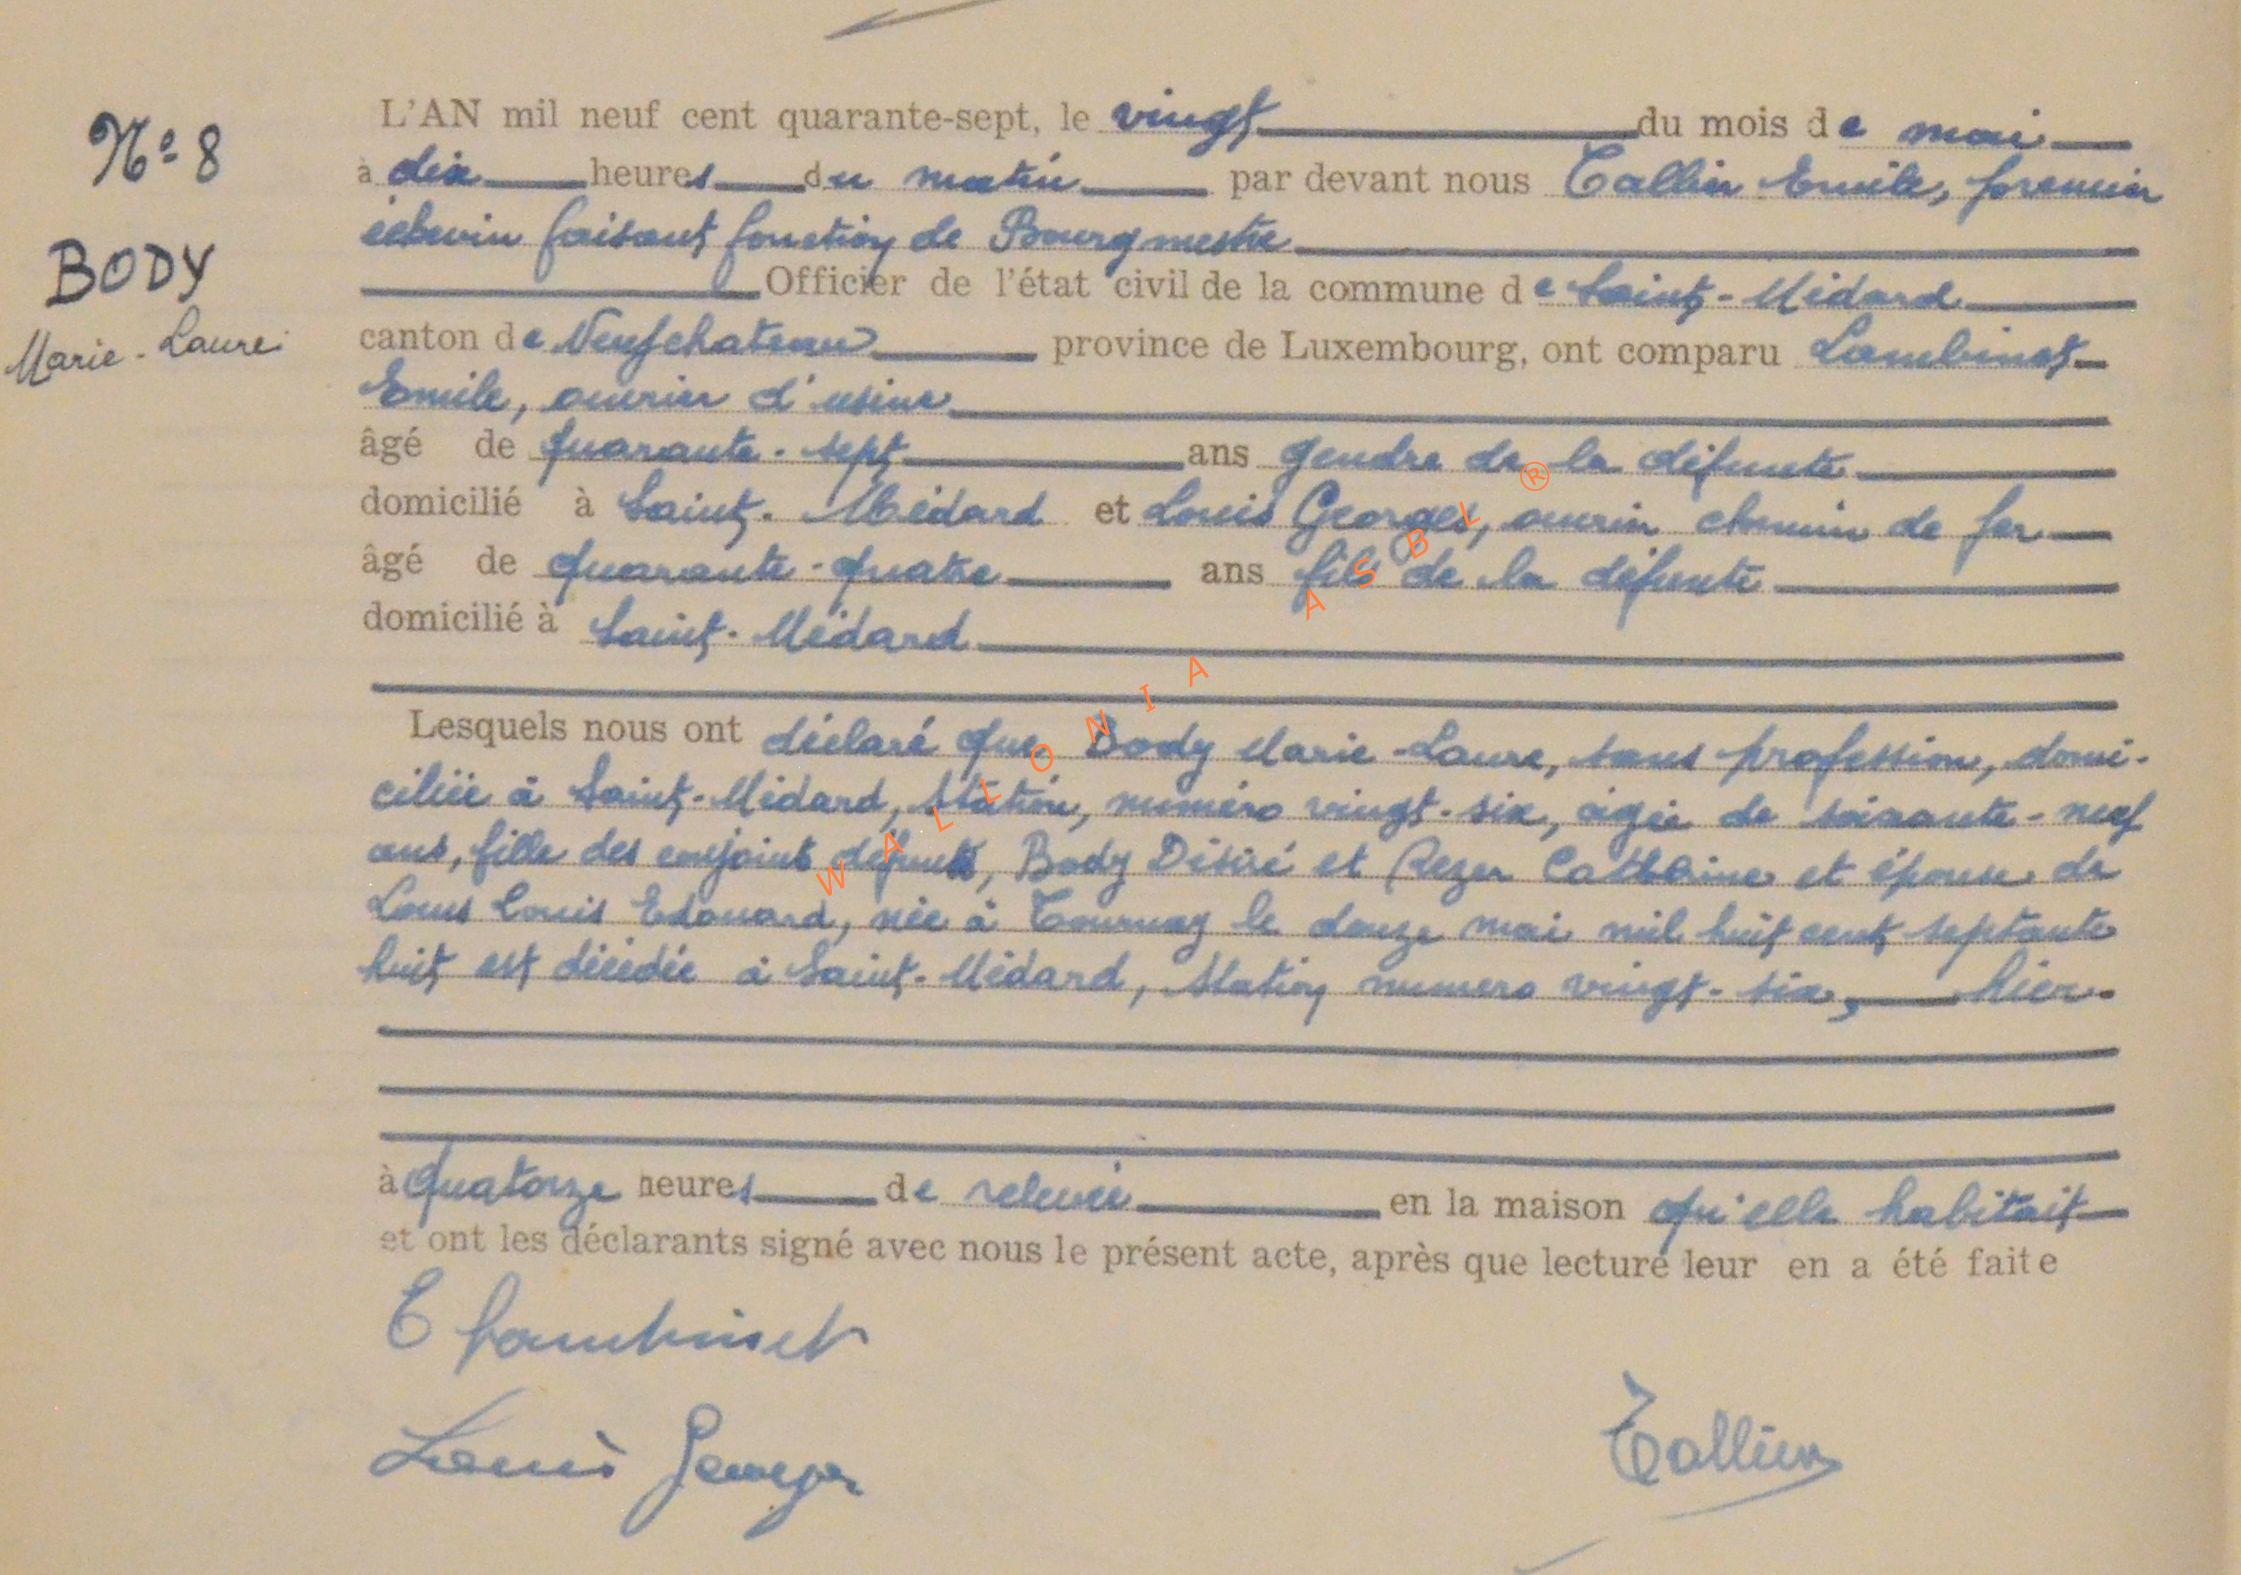 N° 8
BODY
Marie-Laure
L'AN mil neuf cent quarante-sept, le vingt du mois de mai
à dix heures du matin par devant nous Tallier Emile, premier
échevin faisant fonction de Bourgmestre
Officier de l'état civil de la commune de Saint-Médard
canton de Neufchateau province de Luxembourg, ont comparu Lambinet
Emile, ouvrier d'usine
âgé de quarante-sept ans gendre de la défunte
domicilié à Saint-Médard et Louis Georges, ouvrier chemin de fer
âgé de quarante-quatre ans fils de la défunte
domicilié à Saint-Médard
Lesquels nous ont déclaré que Body Marie-Laure, sans profession, domi-
ciliée à Saint-Médard, Station, numéro vingt-six, âgée de soixante-neuf
ans, fille des conjoints défunts, Body Désiré et Rezer Catherine et épouse de
Louis Louis Edouard, née à Tournay le douze mai mil huit cent septante
huit est décédée à Saint-Médard, Station numero vingt-six, hier
à quatorze heures de relevée en la maison qu'elle habitait
et ont les déclarants signé avec nous le présent acte, après que lecture leur en a été faite
E Lambinet
Louis Georges
Tallier
WALLONIA ASBL ®